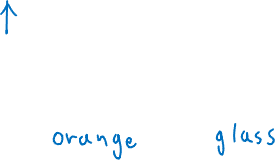 ↑
orange glass